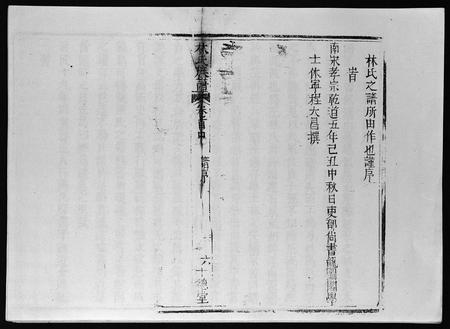 林氏之譜所由作也謹序
旹
南宋孝宗乾道五年己丑中秋日吏部尚書龍圖閣學
士休寧程大昌撰
林氏宗譜 卷之首中 譜序 六 十德堂